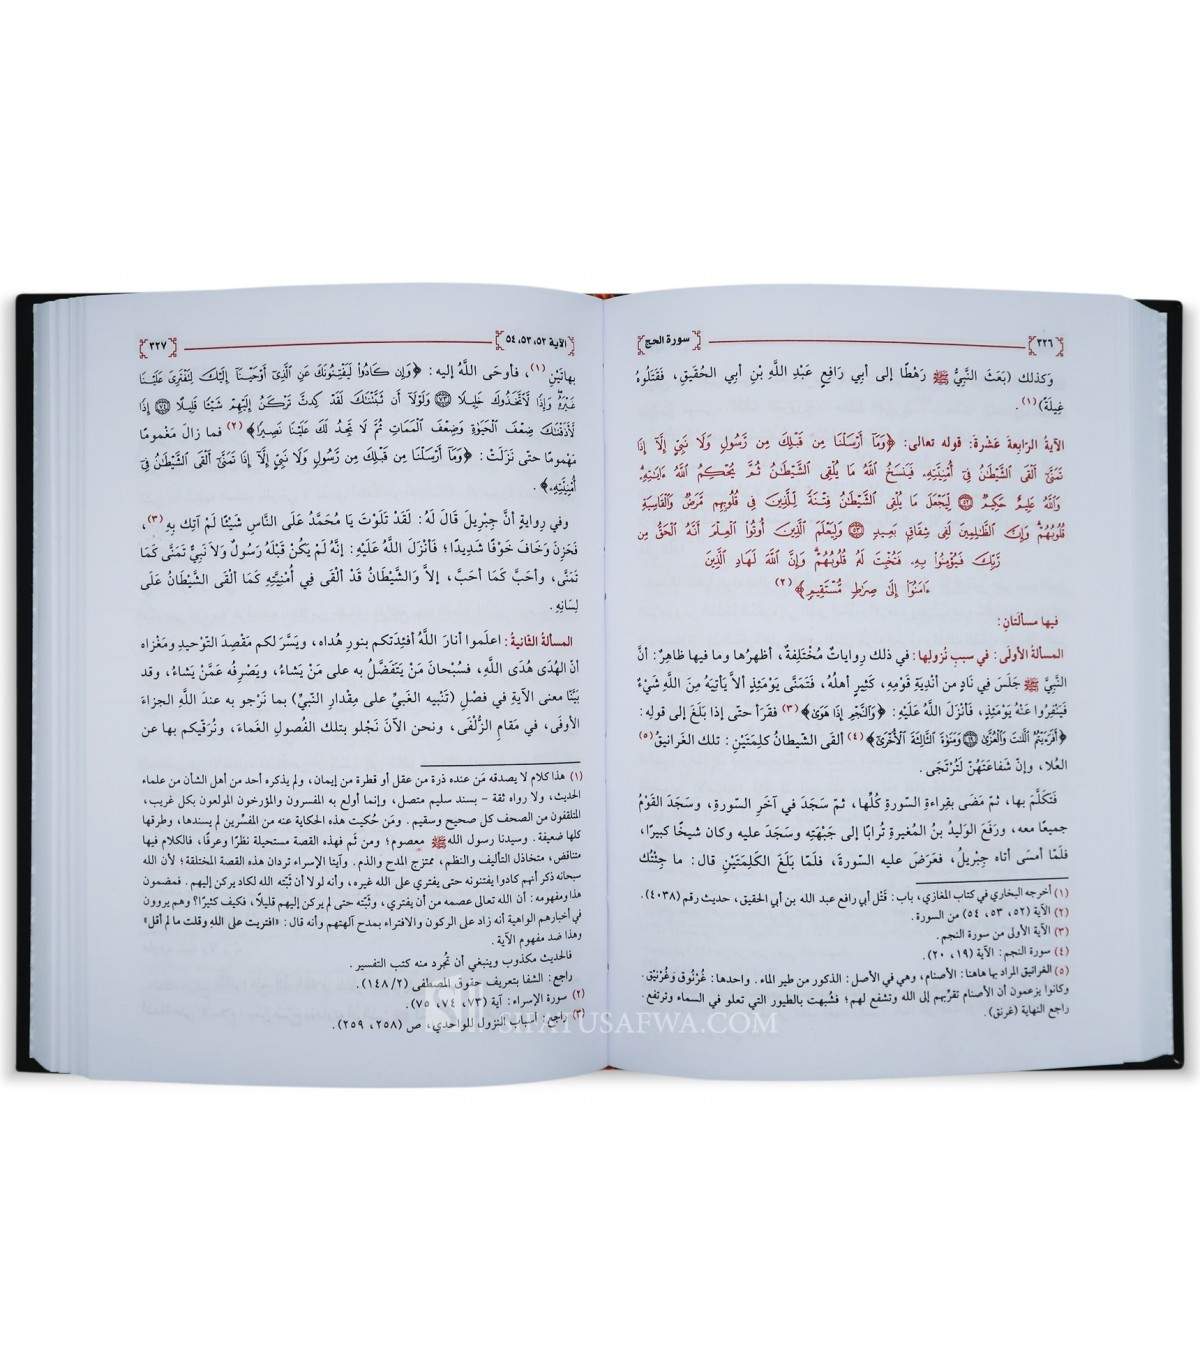 ٣٢٦ سورة الحج
وَكذلك (بَعَثَ النَّبِيُّ ﷺ رَهْطًا إلى أبي رَافِعٍ عَبْدِ اللَّهِ بْنِ أبي الحُقَيقِ، فَقَتَلُوهُ
غِيلَةً)(١) .
الآيةُ الرّابعةَ عَشْرةَ: قوله تعالى: ﴿وَمَآ أَرْسَلْنَا مِن قَبْلِكَ مِن رَّسُولٍ وَلَا نَبِيٍّ إِلَّآ إِذَا
تَمَنَّىٰٓ أَلْقَى ٱلشَّيْطَٰنُ فِىٓ أُمْنِيَّتِهِۦ فَيَنسَخُ ٱللَّهُ مَا يُلْقِى ٱلشَّيْطَٰنُ ثُمَّ يُحْكِمُ ٱللَّهُ ءَايَٰتِهِۦ
وَٱللَّهُ عَلِيمٌ حَكِيمٌ ۝٥٢ لِّيَجْعَلَ مَا يُلْقِى ٱلشَّيْطَٰنُ فِتْنَةً لِّلَّذِينَ فِى قُلُوبِهِم مَّرَضٌ وَٱلْقَاسِيَةِ
قُلُوبُهُمْ وَإِنَّ ٱلظَّٰلِمِينَ لَفِى شِقَاقٍۭ بَعِيدٍ ۝٥٣ وَلِيَعْلَمَ ٱلَّذِينَ أُوتُوا۟ ٱلْعِلْمَ أَنَّهُ ٱلْحَقُّ مِن
رَّبِّكَ فَيُؤْمِنُوا۟ بِهِۦ فَتُخْبِتَ لَهُۥ قُلُوبُهُمْ وَإِنَّ ٱللَّهَ لَهَادِ ٱلَّذِينَ
ءَامَنُوٓا۟ إِلَىٰ صِرَٰطٍ مُّسْتَقِيمٍ﴾(٢)
فيها مسألتان:
المسألةُ الأولَى: في سببِ نُزولِها: في ذلك رِواياتٌ مُخْتَلِفةٌ، أظهرُها وما فيها ظاهِرٌ: أنَّ
النَّبيَّ ﷺ جَلَسَ فِي نَادٍ من أنْدِيَةِ قَوْمِهِ، كَثِيرٍ أهلُهُ، فَتَمَنَّى يَوْمَئِذٍ ألاَّ يَأتِيَهُ مِنَ اللَّهِ شَيْءٌ
فَيَنْفِرُوا عَنْهُ يَوْمَئِذٍ، فَأنْزَلَ اللَّهُ عَلَيْهِ: ﴿وَٱلنَّجْمِ إِذَا هَوَىٰ﴾(٣) فقرَأ حتَّى إذا بَلَغَ إلى قولِهِ:
﴿أَفَرَءَيْتُمُ ٱللَّٰتَ وَٱلْعُزَّىٰ ۝١٩ وَمَنَوٰةَ ٱلثَّالِثَةَ ٱلْأُخْرَىٰٓ﴾(٤) ألقَى الشّيطانُ كلِمتَينِ: تلك الغَرانيقُ(٥)
العُلا، وإنّ شفاعتَهُنّ لَتُرْتَجَى .
فَتَكلَّمَ بها، ثمّ مَضَى بقِراءةِ السّورةِ كُلِّها، ثمّ سَجَدَ في آخَرِ السّورةِ، وسَجَدَ القَوْمُ
جميعًا معه، ورَفَعَ الوَليدُ بنُ المُغيرةِ تُرابًا إلى جَبْهَتِهِ وسَجَدَ عليه وكان شيخًا كبيرًا،
فلَمّا أمسَى أتاه جِبريلُ، فعَرَضَ عليه السّورةَ، فلَمّا بَلَغَ الكَلِمتَيْنِ قال: ما جِئْتُك
(١) أخرجه البخاري في كتاب المغازي، باب: قَتْل أبي رافع عبد الله بن أبي الحقيق، حديث رقم (٤٠٣٨).
(٢) الآية (٥٢، ٥٣، ٥٤) من السورة .
(٣) الآية الأولى من سورة النجم .
(٤) سورة النجم: الآية (١٩، ٢٠) .
(٥) الغرانيق المراد بها هاهنا: الأصنام، وهي في الأصل: الذكور من طير الماء . واحدها: غُرْنُوق وغُرْنَيْق .
وكانوا يزعمون أن الأصنام تقرِّبهم إلى الله وتشفع لهم؛ فشُبهت بالطيور التي تعلو في السماء وترتفع .
راجع النهاية (غرنق) .
الآية ٥٢، ٥٣، ٥٤ ٣٢٧
بهاتَيْنِ(١)، فأوحَى اللَّهُ إليه: ﴿وَإِن كَادُوا۟ لَيَفْتِنُونَكَ عَنِ ٱلَّذِىٓ أَوْحَيْنَآ إِلَيْكَ لِتَفْتَرِىَ عَلَيْنَا
غَيْرَهُۥ وَإِذًا لَّٱتَّخَذُوكَ خَلِيلًا ۝٧٣ وَلَوْلَآ أَن ثَبَّتْنَٰكَ لَقَدْ كِدتَّ تَرْكَنُ إِلَيْهِمْ شَيْـًٔا قَلِيلًا ۝٧٤ إِذًا
لَّأَذَقْنَٰكَ ضِعْفَ ٱلْحَيَوٰةِ وَضِعْفَ ٱلْمَمَاتِ ثُمَّ لَا تَجِدُ لَكَ عَلَيْنَا نَصِيرًا﴾(٢) فما زالَ مَغْمومًا
مَهْمومًا حتّى نَزَلَتْ: ﴿وَمَآ أَرْسَلْنَا مِن قَبْلِكَ مِن رَّسُولٍ وَلَا نَبِيٍّ إِلَّآ إِذَا تَمَنَّىٰٓ أَلْقَى ٱلشَّيْطَٰنُ فِىٓ
أُمْنِيَّتِهِۦ﴾ .
وفي رِوايةٍ أنَّ جِبْرِيلَ قَالَ لَهُ: لَقَدْ تَلَوْتَ يَا مُحَمَّدُ عَلَى النَّاسِ شَيْئًا لَمْ آتِك بِهِ(٣)،
فَحَزِنَ وَخَافَ خَوْفًا شَدِيدًا؛ فَأنْزَلَ اللَّهُ عَلَيْهِ: إنَّهُ لَمْ يَكُنْ قَبْلَهُ رَسُولٌ وَلاَ نَبِيٌّ تَمَنَّى كَمَا
تَمَنَّى، وأحَبَّ كَمَا أحَبَّ، إلاَّ وَالشَّيْطَانُ قَدْ ألْقَى في أُمْنِيَّتِهِ كَمَا ألْقَى الشَّيْطَانُ عَلَى
لِسَانِهِ .
المسألةُ الثّانيةُ: اعلَموا أنارَ اللَّهُ أفئِدَتَكم بنورِ هُداه، ويَسَّرَ لكم مَقْصِدَ التّوحيدِ ومَغْزاه
أنّ الهُدَى هُدَى اللَّهِ، فسُبْحانَ مَنْ يَتَفَضَّلُ به على مَنْ يَشاءُ، ويَصْرِفُه عَمَّنْ يَشاءُ، وقد
بَيَّنّا معنى الآيةِ في فصْلِ (تَنْبيه الغَبيِّ على مِقدارِ النّبيِّ) بما نَرْجو به عندَ اللَّهِ الجزاءَ
الأوفَى، في مَقامِ الزُّلْفَى، ونحن الآنَ نَجْلو بتلك الفُصولِ الغَماءَ، ونُرَقّيكم بها عن
(١) هذا كلام لا يصدقه مَن عنده ذرة من عقل أو قطرة من إيمان، ولم يذكره أحد من أهل الشأن من علماء
الحديث، ولا رواه ثقة - بسند سليم متصل، وإنما أولع به المفسرون والمؤرخون المولعون بكل غريب،
المتلقفون من الصحف كل صحيح وسقيم . ومَن حُكيت هذه الحكاية عنه من المفسِّرين لم يسندها، وطرقها
كلها ضعيفة . وسيدنا رسول الله ﷺ معصوم؛ ومن ثَم فهذه القصة مستحيلة نظرًا وعرفًا، فالكلام فيها
متناقض، متخاذل التأليف والنظم، ممتزج المدح والذم . وآيتا الإسراء تردان هذه القصة المختلقة؛ لأن الله
سبحانه ذكر أنهم كادوا يفتنونه حتى يفتري على الله غيره، وأنه لولا أن ثبّته الله لكاد يركن إليهم . فمضمون
هذا ومفهومه: أن الله تعالى عصمه من أن يفتري، وثبّته حتى لم يركن إليهم قليلًا، فكيف كثيرًا؟ وهم يروون
في أخبارهم الواهية أنه زاد على الركون والافتراء بمدح آلهتهم وأنه قال: «افتريت على الله وقلت ما لم أقل»
وهذا ضد مفهوم الآية .
فالحديث مكذوب وينبغي أن تُجرد منه كتب التفسير .
راجع: الشفا بتعريف حقوق المصطفى (٢/١٤٨) .
(٢) سورة الإسراء: آية (٧٣، ٧٤، ٧٥) .
(٣) راجع: أسباب النزول للواحدي، ص (٢٥٨، ٢٥٩) .
SIFATUSAFWA.COM